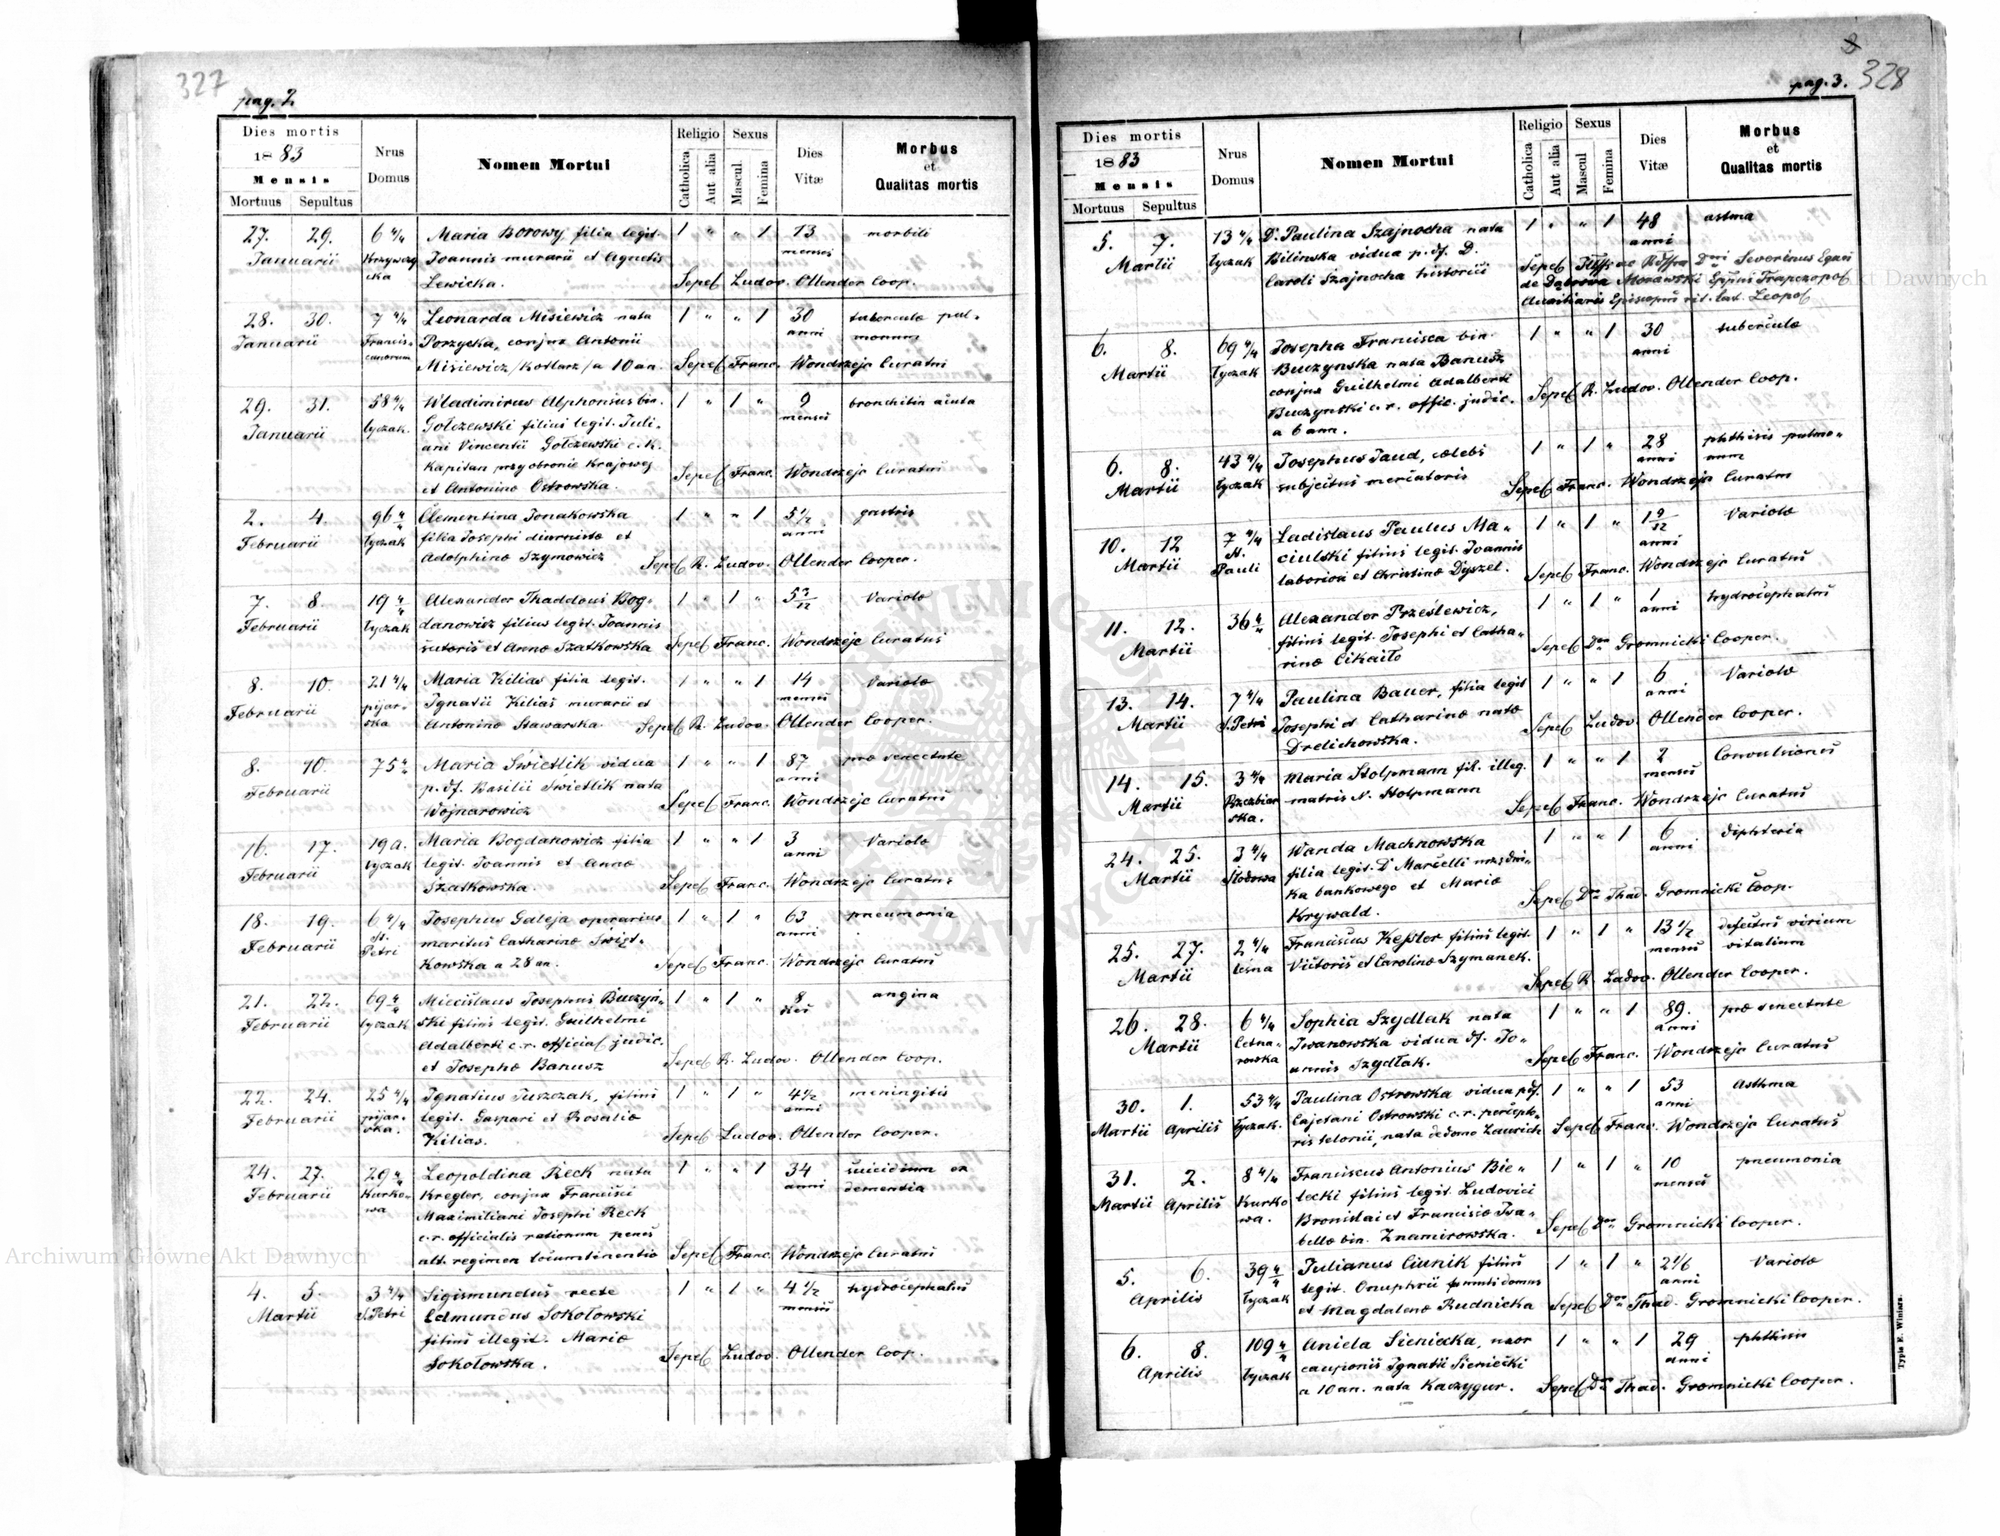 327
pag. 2
Dies mortis
1883
Mensis
Mortuus Sepultus
Nrus Domus
Nomen Mortui
Religio
Catholica
Aut alia
Sexus
Mascul
Femina
Dies Vitæ
Morbus et Qualitas mortis
27. 29. 6 4/4 Maria Borowy filia legit. 1 " " 1 13 morbili
Januarii Joannis murarii et Agnetis menses
Lewicka. Sepel Ludov. Ollender Coop.
28. 30. 7 4/4 Leonarda Misiewicz nata 1 " " 1 30 tubercula pul-
Januarii Francis- Porzycka, conjux Antonii anni monum
canorum Misiewicz /Kotlarz/ a 10 an. Sepel Franc. Wondrzejc Curatus
29. 31. 58 4/4 Wladimirus Alphonsus bin. 1 " 1 " 9 bronchitis acuta
Januarii Łyczak. Golczewski filius legit. Juli- menses
ani Vincentii Golczewski c. k.
Kapitan przy obronie Krajowej Sepel Franc. Wondrzejc Curatus
et Antoninæ Ostrowska.
2. 4. 96 4/4 Clementina Jonakowska 1 " " 1 5 1/2 gastris
Februarii Łyczak filia Josephi diurnistæ et anni
Adolphinæ Szymowicz Sepel R. Ludov. Ollender Cooper.
7. 8. 19 4/4 Alexander Thaddeus Bog- 1 " 1 " Variolæ
Februarii Łyczak danowicz filius legit. Joannis
sutoris et Annæ Szatkowska Sepel Franc. Wondrzejc Curatus
8. 10. 21 4/4 Maria Kilias filia legit. 1 " " 1 14 Variolæ
Februarii pijar- Ignatii Kilias murarii et menses
ska Antoninæ Stawarska. Sepel R. Ludov. Ollender Cooper.
8. 10. 75 Maria Świetlik vidua 1 " " 1 87 præ senectute
Februarii p. df. Basilii Świetlik nata anni
Wojnarowicz Sepel Franc. Wondrzejc Curatus
16. 17. 19 a. Maria Bogdanowicz filia 1 " " 1 3 Variolæ
Februarii Łyczak legit. Joannis et Annæ anni
Szatkowska. Sepel Franc. Wondrzejc Curatus
18. 19. 6 4/4 Josephus Galeja operarius 1 " 1 " 63 pneumonia
Februarii St. Petri maritus Catharinæ Świąt- anni
kowska a 28 an. Sepel Franc. Wondrzejc Curatus
21. 22. 69 4/4 Miecislaus Josephus Buczyń- 1 " 1 " 8 angina
Februarii Łyczak ski filius legit. Guilhelmi
Adalberti c. r. official judic.
et Josephæ Banusz Sepel R. Ludov. Ollender Coop.
22. 24. 25 4/4 Ignatius Tuszczak, filius 1 " 1 " 4 1/2 meningitis
Februarii pijar- legit. Gaspari et Rosaliæ anni
ska. Kilias. Sepel Ludov. Ollender Cooper.
24. 27. 29 4/4 Leopoldina Reck nata 1 " " 1 34 suicidium ex
Februarii Kurko- Kregler, conjux Francisci anni dementia
wa Maximiliani Josephi Reck
c. r. officialis rationum penes
alt. regimen locumtenentiæ Sepel Franc. Wondrzejc Curatus
4. 5. 3 4/4 Sigismundus recte 1 " 1 " 4 1/2 hydrocephalus
Martii S. Petri Edmundus Sokołowski menses
filius illegit. Mariæ
Sokołowska. Sepel Ludov. Ollender Coop.
pag. 3. 328
Dies mortis
1883
Mensis
Mortuus Sepultus
Nrus Domus
Nomen Mortui
Religio
Catholica
Aut alia
Sexus
Mascul
Femina
Dies Vitæ
Morbus et Qualitas mortis
5. 7. 13 4/4 D. Paulina Szajnocha nata 1 " " 1 48 astma
Martii Łyczak Bilinska vidua p. df. D. anni
Caroli Szajnocha historici Sepel Severinus
de Dąbrowa Morawski Eppus Trapezopol
Auxiliaris Episcopus rit. lat. Leopol
6. 8. 69 4/4 Josepha Francisca bin. 1 " " 1 30 tuberculæ
Martii Łyczak Buczynska nata Banusz anni
conjux Guilhelmi Adalberti Sepel R. Ludov. Ollender Coop.
Buczynski c. r. offic. judic.
a 6 ann.
6. 8. 43 4/4 Josephus Jaud, cælebs 1 " 1 " 28 phthisis pulmo-
Martii Łyczak subjectus mercatoris anni num
Sepel Franc. Wondrzejc Curatus
10. 12 7 4/4 Ladislaus Paulus Ma- 1 " 1 " 1 9/12 Variolæ
Martii St. Pauli ciulski filius legit. Joannis anni
laborios et Christinæ Dyszel. Sepel Franc. Wondrzejc Curatus
11. 12. 36 4/4 Alexander Prześlewicz, 1 " 1 " 1 hydrocephalus
Martii filius legit. Josephi et Catha- anni
rinæ Cikaiło Sepel Don Gromnicki Cooper.
13. 14. 7 4/4 Paulina Bauer, filia legit 1 " " 1 6 Variolæ
Martii S. Petri Josephi et Catharinæ natæ anni
Drelichowska. Sepel Ludov. Ollender Cooper.
14. 15. 3 4/4 Maria Stolpmann fil. illeg. 1 " " 1 2 Convulsiones
Martii Rzeźbiar- matris N. Stolpmann menses
ska. Sepel Franc. Wondrzejc Curatus
24. 25. 3 4/4 Wanda Machnowska 1 " " 1 6 diphteria
Martii Słodowa filia legit. D. Marcelli urzędni- anni
ka bankowego et Mariæ Sepel Don Thad. Gromnicki Coop.
Krywald.
25. 27. 2 4/4 Franciscus Keßler filius legit. 1 " 1 " 13 1/2 defectus virium
Martii Leśna Victoris et Carolinæ Szymanek. menses vitalium
Sepel R. Ludov. Ollender Cooper.
26. 28. 6 4/4 Sophia Szydłak nata 1 " " 1 89. præ senectute
Martii Cetna- Iwanowska vidua df. Jo- anni
rowska annis Szydłak. Sepel Franc. Wondrzejc Curatus
30. 1. 53 4/4 Paulina Ostrowska vidua p df. 1 " " 1 53 Asthma
Martii Aprilis Łyczak. Cajetani Ostrowski c. r. percepto- anni
ris telonii, nata de domo Laurich Sepel Franc. Wondrzejc Curatus
31. 2. 8 4/4 Franciscus Antonius Bie- 1 " 1 " 10 pneumonia
Martii Aprilis Kurko lecki filius legit. Ludovici menses
wa. Bronislai et Franciscæ Isa-
bellæ bin. Znamirowska. Sepel Don Gromnicki Cooper.
5. 6. 39 4/4 Julianus Ciunik filius 1 " 1 " 2 1/6 Variolæ
Aprilis Łyczak legit. Onuphrii famuli domus anni
et Magdalenæ Rudnicka Sepel Don Thad. Gromnicki Cooper.
6. 8. 109 4/4 Aniela Sieniecka, uxor 1 " " 1 29 phthisis
Aprilis Łyczak cauponis Ignatii Sieniecki anni
a 10 an. nata Kaczygur. Sepel Don Thad. Gromnicki Cooper.
Typis E. Winiarz.
Archiwum Główne Akt Dawnych